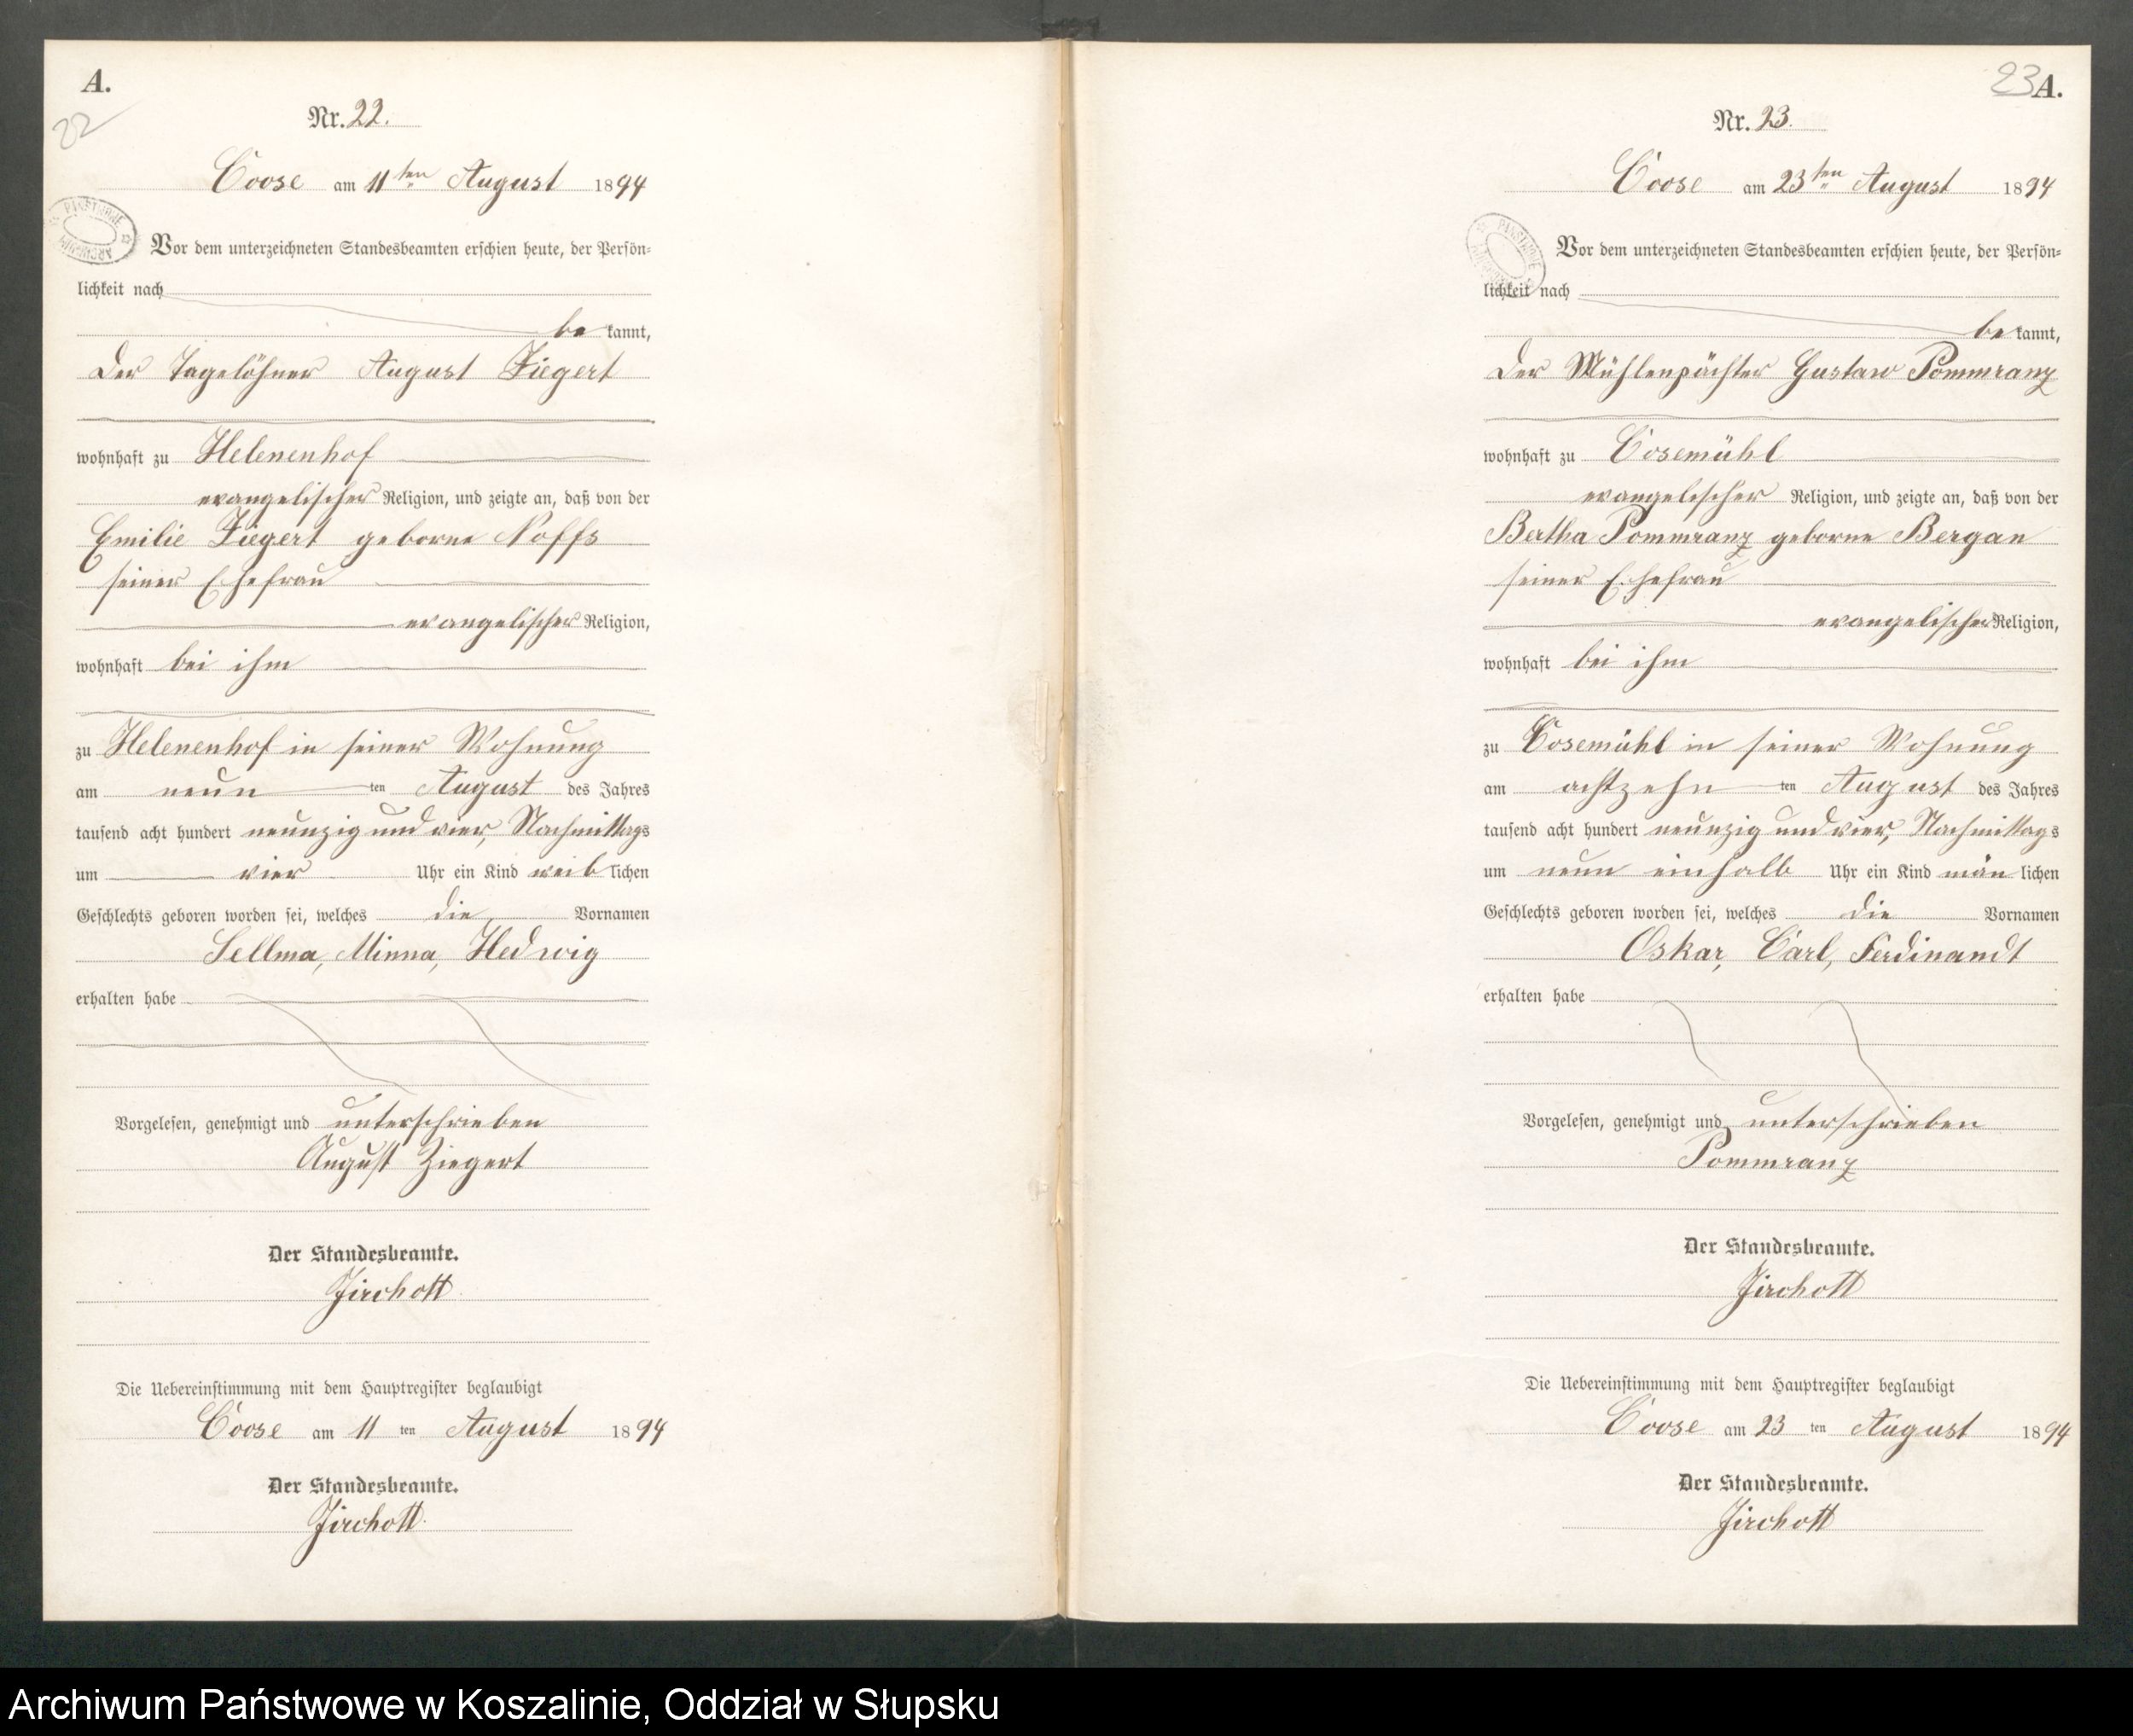 A.
22
Nr. 22.
Coose am 11ten August 1894
Vor dem unterzeichneten Standesbeamten erschien heute, der Persön-
lichkeit nach
be kannt,
der Tagelöhner August Ziegert
wohnhaft zu Helenenhof
evangelischer Religion, und zeigte an, daß von der
Emilie Ziegert geborne Noffs
seiner Ehefrau
evangelischer Religion,
wohnhaft bei ihm
zu Helenenhof in seiner Wohnung
am neun ten August des Jahres
tausend acht hundert neunzig und vier, Nachmittags
um vier Uhr ein Kind weib lichen
Geschlechts geboren worden sei, welches die Vornamen
Sellma, Minna, Hedwig
erhalten habe
Vorgelesen, genehmigt und unterschrieben
August Ziegert
Der Standesbeamte.
Jirchott
Die Uebereinstimmung mit dem Hauptregister beglaubigt
Coose am 11 ten August 1894
Der Standesbeamte.
Jirchott.
23 A.
Nr. 23.
Coose am 23ten August 1894
Vor dem unterzeichneten Standesbeamten erschien heute, der Persön-
lichkeit nach
be kannt,
der Mühlenpächter Gustaw Pommranz
wohnhaft zu Cosemühl
evangelischer Religion, und zeigte an, daß von der
Bertha Pommranz geborne Bergan
seiner Ehefrau
evangelischer Religion,
wohnhaft bei ihm
zu Cosemühl in seiner Wohnung
am achtzehn ten August des Jahres
tausend acht hundert neunzig und vier, Nachmittags
um neun einhalb Uhr ein Kind män lichen
Geschlechts geboren worden sei, welches die Vornamen
Oskar, Carl, Ferdinandt
erhalten habe
Vorgelesen, genehmigt und unterschrieben
Pommranz
Der Standesbeamte.
Jirchott
Die Uebereinstimmung mit dem Hauptregister beglaubigt
Coose am 23 ten August 1894
Der Standesbeamte.
Jirchott
Archiwum Państwowe w Koszalinie, Oddział w Słupsku